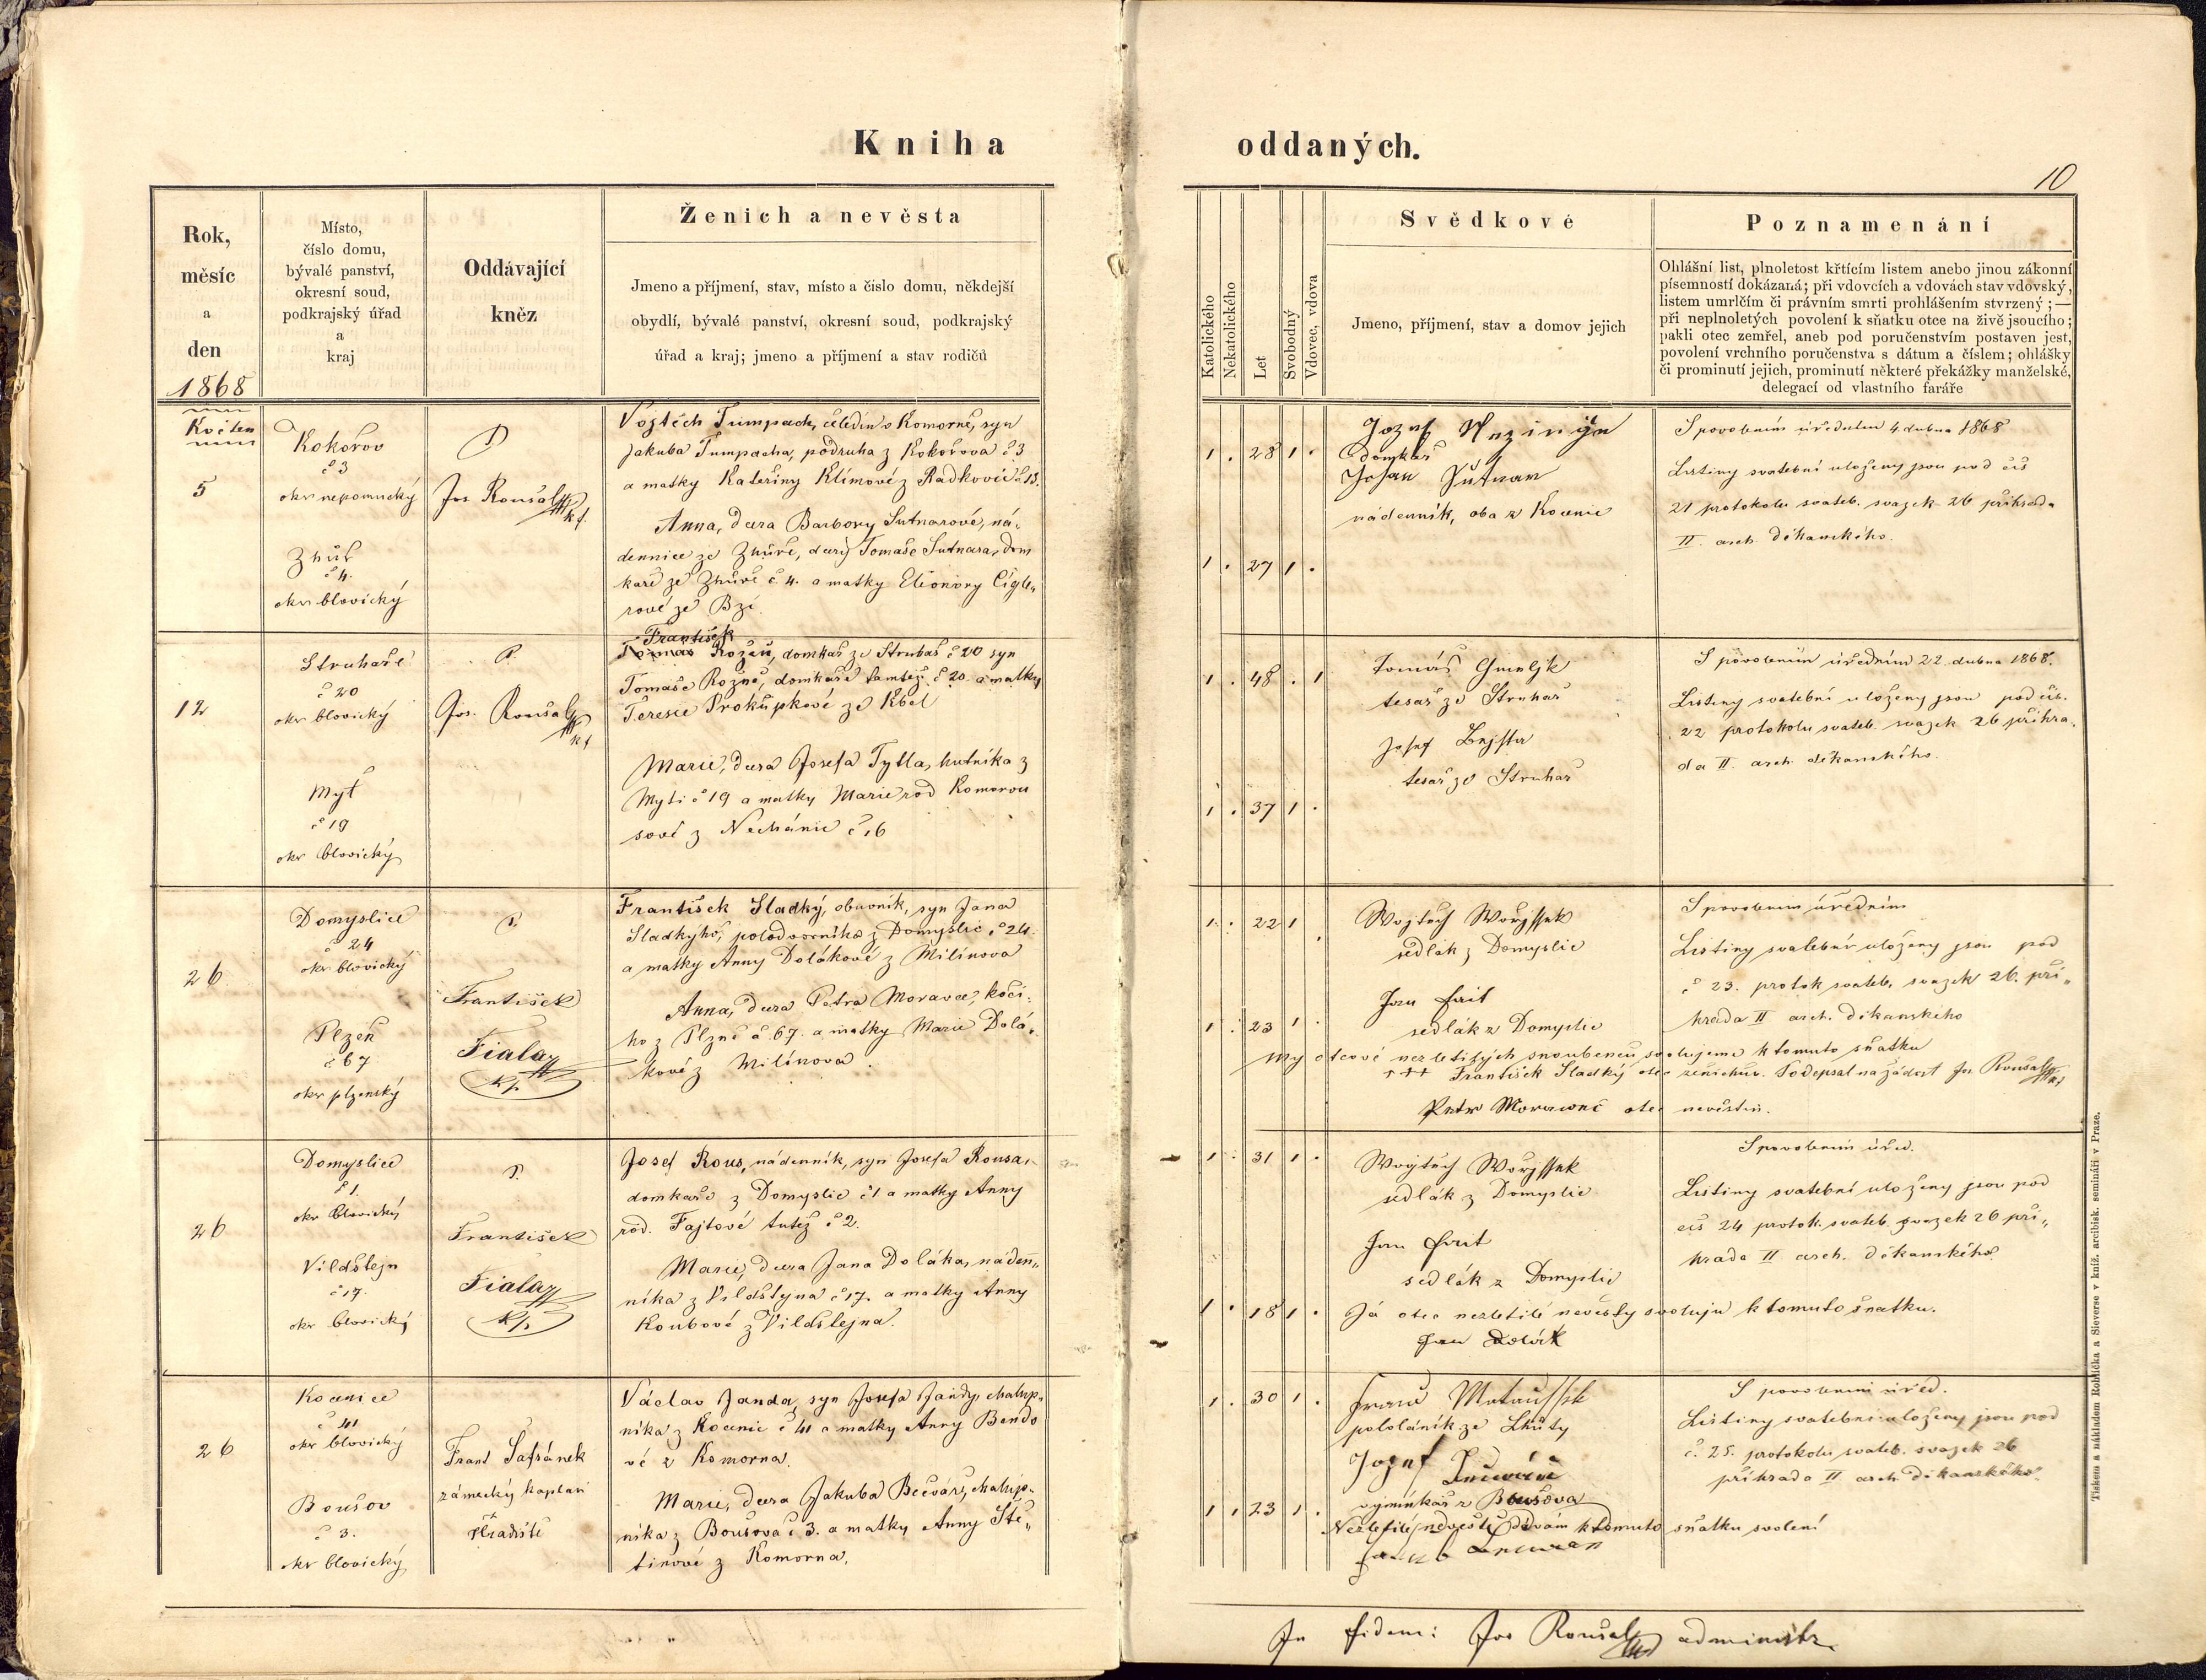 Kniha oddaných.
10
Rok,
měsíc
a
den
1868
Místo,
číslo domu,
bývalé panství,
okresní soud,
podkrajský úřad
a
kraj
Oddávající
kněz
Ženich a nevěsta
Jmeno a příjmení, stav, místo a číslo domu, někdejší
obydlí, bývalé panství, okresní soud, podkrajský
úřad a kraj; jmeno a příjmení a stav rodičů
Katolického
Nekatolického
Let
Svobodný
Vdovec, vdova
Svědkové
Jmeno, příjmení, stav a domov jejich
Poznamenání
Ohlášní list, plnoletost křtícím listem anebo jinou zákonní
písemností dokázaná; při vdovcích a vdovách stav vdovský,
listem umrlčím či právním smrti prohlášením stvrzený; —
při neplnoletých povolení k sňatku otce na živě jsoucího;
pakli otec zemřel, aneb pod poručenstvím postaven jest,
povolení vrchního poručenstva s dátum a číslem; ohlášky
či prominutí jejich, prominutí některé překážky manželské,
delegací od vlastního faráře
Květen
5
Kokořov
č 3
okr nepomucký
Zhůř
č 4.
okr blovický
P
Jos Roušal
Vojtěch Tumpach, čeledín v Komorně, syn
Jakuba Tumpacha, podruha z Kokořova č 3
a matky Kateřiny Klímové z Radkovic č 13.
Anna, dcera Barbory Sutnarové, ná-
dennice ze Zhůře, dcery Tomaše Sutnara, dom
kaře ze Zhůře č 4. a matky Eleonory Cígle-
rové ze Bzí.
1 . 28 1 .
1 . 27 1 .
Jozef
domkař
Johan Sutnar
nádenník, oba z Kocenic
S povolením úředním 4 dubna 1868
Listiny svatební uloženy jsou pod čís
21 protokolu svateb. svazek 26 přihrada
II. arch děkanského.
12
Struhaře
č 20
okr blovický
Myť
č 19
okr blovický
P.
Jos. Roušal
František
Tomas Rozen, domkař ze Struhař č 20 syn
Tomaše Rozně, domkaře tamtéž č 20. a matky
Teresie Prokůpkové ze Kbel
Marie, dcera Josefa Tytla, hutníka z
Myti č 19 a matky Marie rod Komorou
sové z Nechánic č 16
1 . 48 . 1
1 . 37 1 .
Tomáš
tesař ze Struhař
Josef
tesař ze Struhař
S povolením úředním 22. dubna 1868.
Listiny svatební uloženy jsou pod čís.
22 protokolu svateb. svazek 26 přihra-
da II. arch. děkanského.
26
Domyslice
č 24
okr blovický
Plzeň
č 67
okr plzenský
P.
František
Fiala
kp.
František Sladký, obuvník, syn Jana
Sladkýho, polodvorníka z Domyslic č 24.
a matky Anny Dolákové z Milínova
Anna, dcera Petra Moravce, kočí-
ho z Plzně č. 67. a matky Marie Dolá-
kové z Milínova.
1 . 22 1 .
1 . 23 1 .
Wojtěch
sedlák z Domyslic
Jan
sedlák z Domyslic
S povolením úředním
Listiny svatební uloženy jsou pod
č 23. protok svateb. svazek 26. při-
hrada II arch. děkanského
My otcové nezletilých snoubenců svolujeme k tomuto sňatku
+++ František Sladký otec ženichův. Podepsal na žádost Jos Roušal
Petr otec nevěstin.
26
Domyslice
č 1.
okr blovický
Vildštejn
č 17.
okr blovický
P.
František
Fiala
kp.
Josef Rous, nádenník, syn Josefa Rousa,
domkaře z Domyslic č 1 a matky Anny
rod. Fajtové tutéž č 2.
Marie, dcera Jana Doláka, náden-
níka z Vildštyna č 17. a matky Anny
Koubové z Vildštejna.
1 . 31 1 .
1 . 18 1 .
Wojtěch
sedlák z Domyslic
Jan
sedlák z Domyslic
S povolením úřed.
Listiny svatební uloženy jsou pod
čís 24 protok. svateb. svazek 26 při-
hrada II arch. děkanského
Já otec nezletilé nevěsty svoluju k tomuto sňatku.
Jan Dolák
26
Kocenice
č 41
okr blovický
Boušov
č 3.
okr blovický
Frant Šafránek
zámecký kaplan
Hradiště
Václav Janda, syn Josefa Jandy, chalup-
níka z Kocenic č 41 a matky Anny Bendo
vé z Komorna.
Marie, dcera Jakuba Bečváře, chalup-
níka z Boušova č 3. a matky Anny Ště-
tinové z Komorna.
1 . 30 1 .
1 . 23 1 .
Franc
pololáník ze Lhůty
Jozef
výmínkář z Boušova
Nezletilé nevěstě dávám k tomuto sňatku svolení
S povolením úřed.
Listiny svatební uloženy jsou pod
č. 25. protokolu svateb. svazek 26
přihrada II arch. děkanského.
In fidem: Jos Roušal administr.
Tiskem a nákladem Rohlíčka a Sieverse v kníž. arcibisk. semináři v Praze.